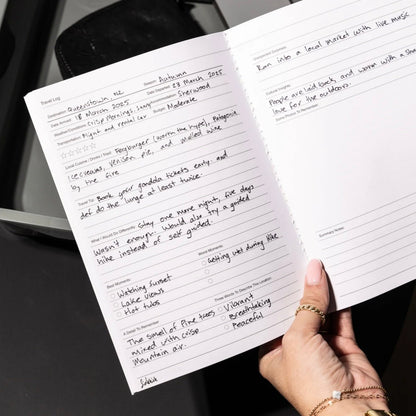 Travel Log
Destination: Queenstown, NZ Season: Autumn
Date Arrived: 18 March 2025 Date Departed: 23 March 2025
Weather Conditions: Crisp Mornings, Sunny Accommodation: Sherwood
Transportation: Flight and rental car Budget: Moderate
Local Cuisine / Drinks I Tried: Fergburger (worth the hype), Patagonia
ice cream, venison pie, and mulled wine
by the fire
Travel Tip: Book your gondola tickets early. and
def do the luge at least twice.
What I Would Do Differently: Stay one more night, five days
wasn't enough. Would also try a guided
hike instead of self guided.
Best Moments:
Watching sunset
Lake views
Hot tubs
Worst Moments:
Getting wet during hike
A Detail To Remember:
The smell of Pine trees
mixed with crisp
Mountain air.
Three Words To Describe The Location:
Vibrant
Breathtaking
Peaceful
Unexpected Surprises:
Ran into a local market with live music
Cultural Insights:
People are laid back and worm with a sha
love for the outdoors.
Summary Notes: